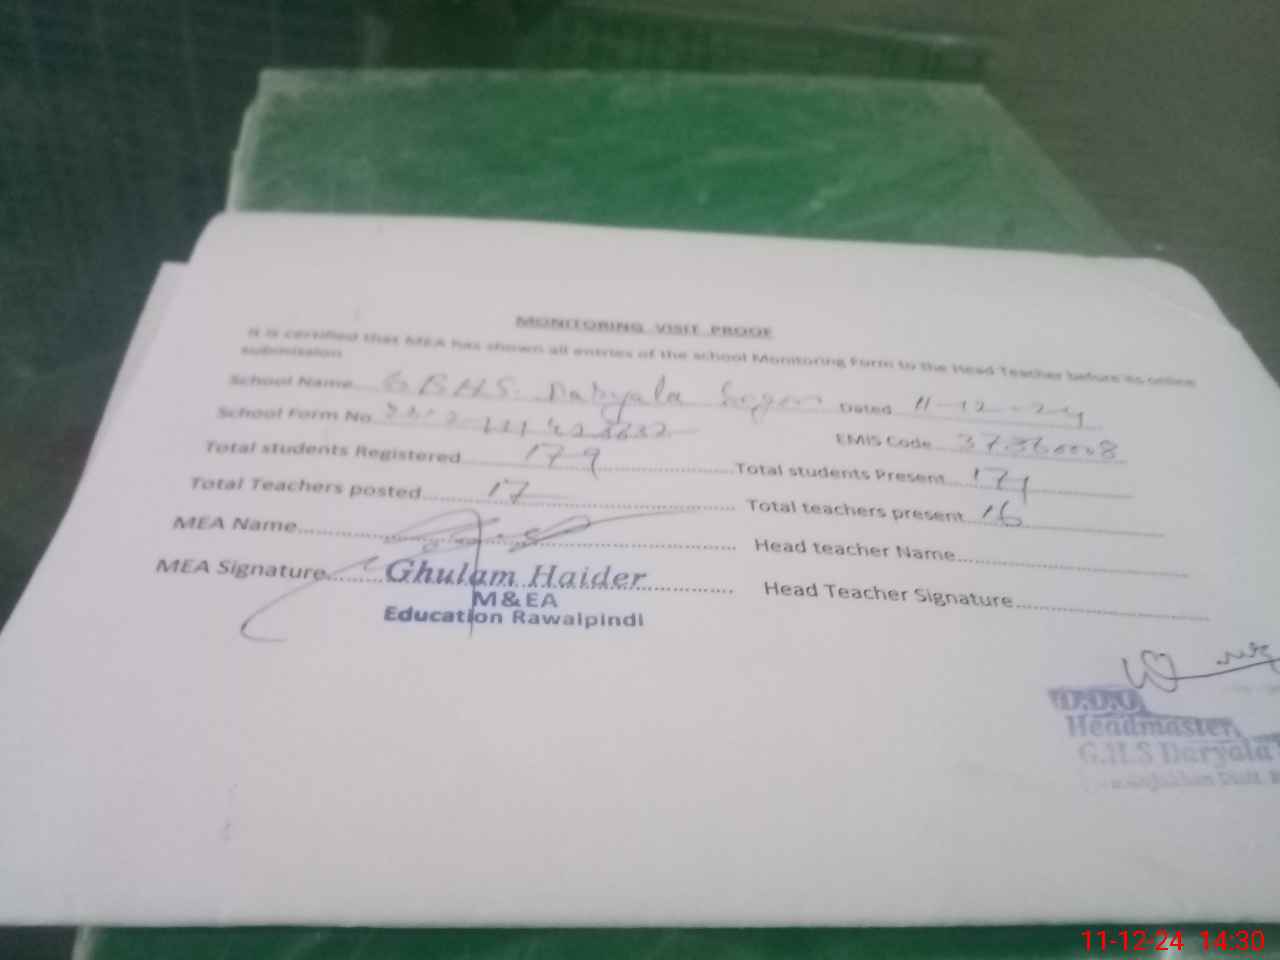 MONITORING VISIT PROOF
It is certified that MEA has shown all entries of the school Monitoring Form to the Head Teacher before its online
submission
School Name GBHS. Daryala Dated 11-12-24
School Form No EMIS Code 37360008
Total students Registered 179 Total students Present 171
Total Teachers posted 17 Total teachers present 16
MEA Name Head teacher Name
MEA Signature Ghulam Haider Head Teacher Signature
M&EA
Education Rawalpindi
D.D.O
Headmaster
G.H.S Daryala
11-12-24 14:30